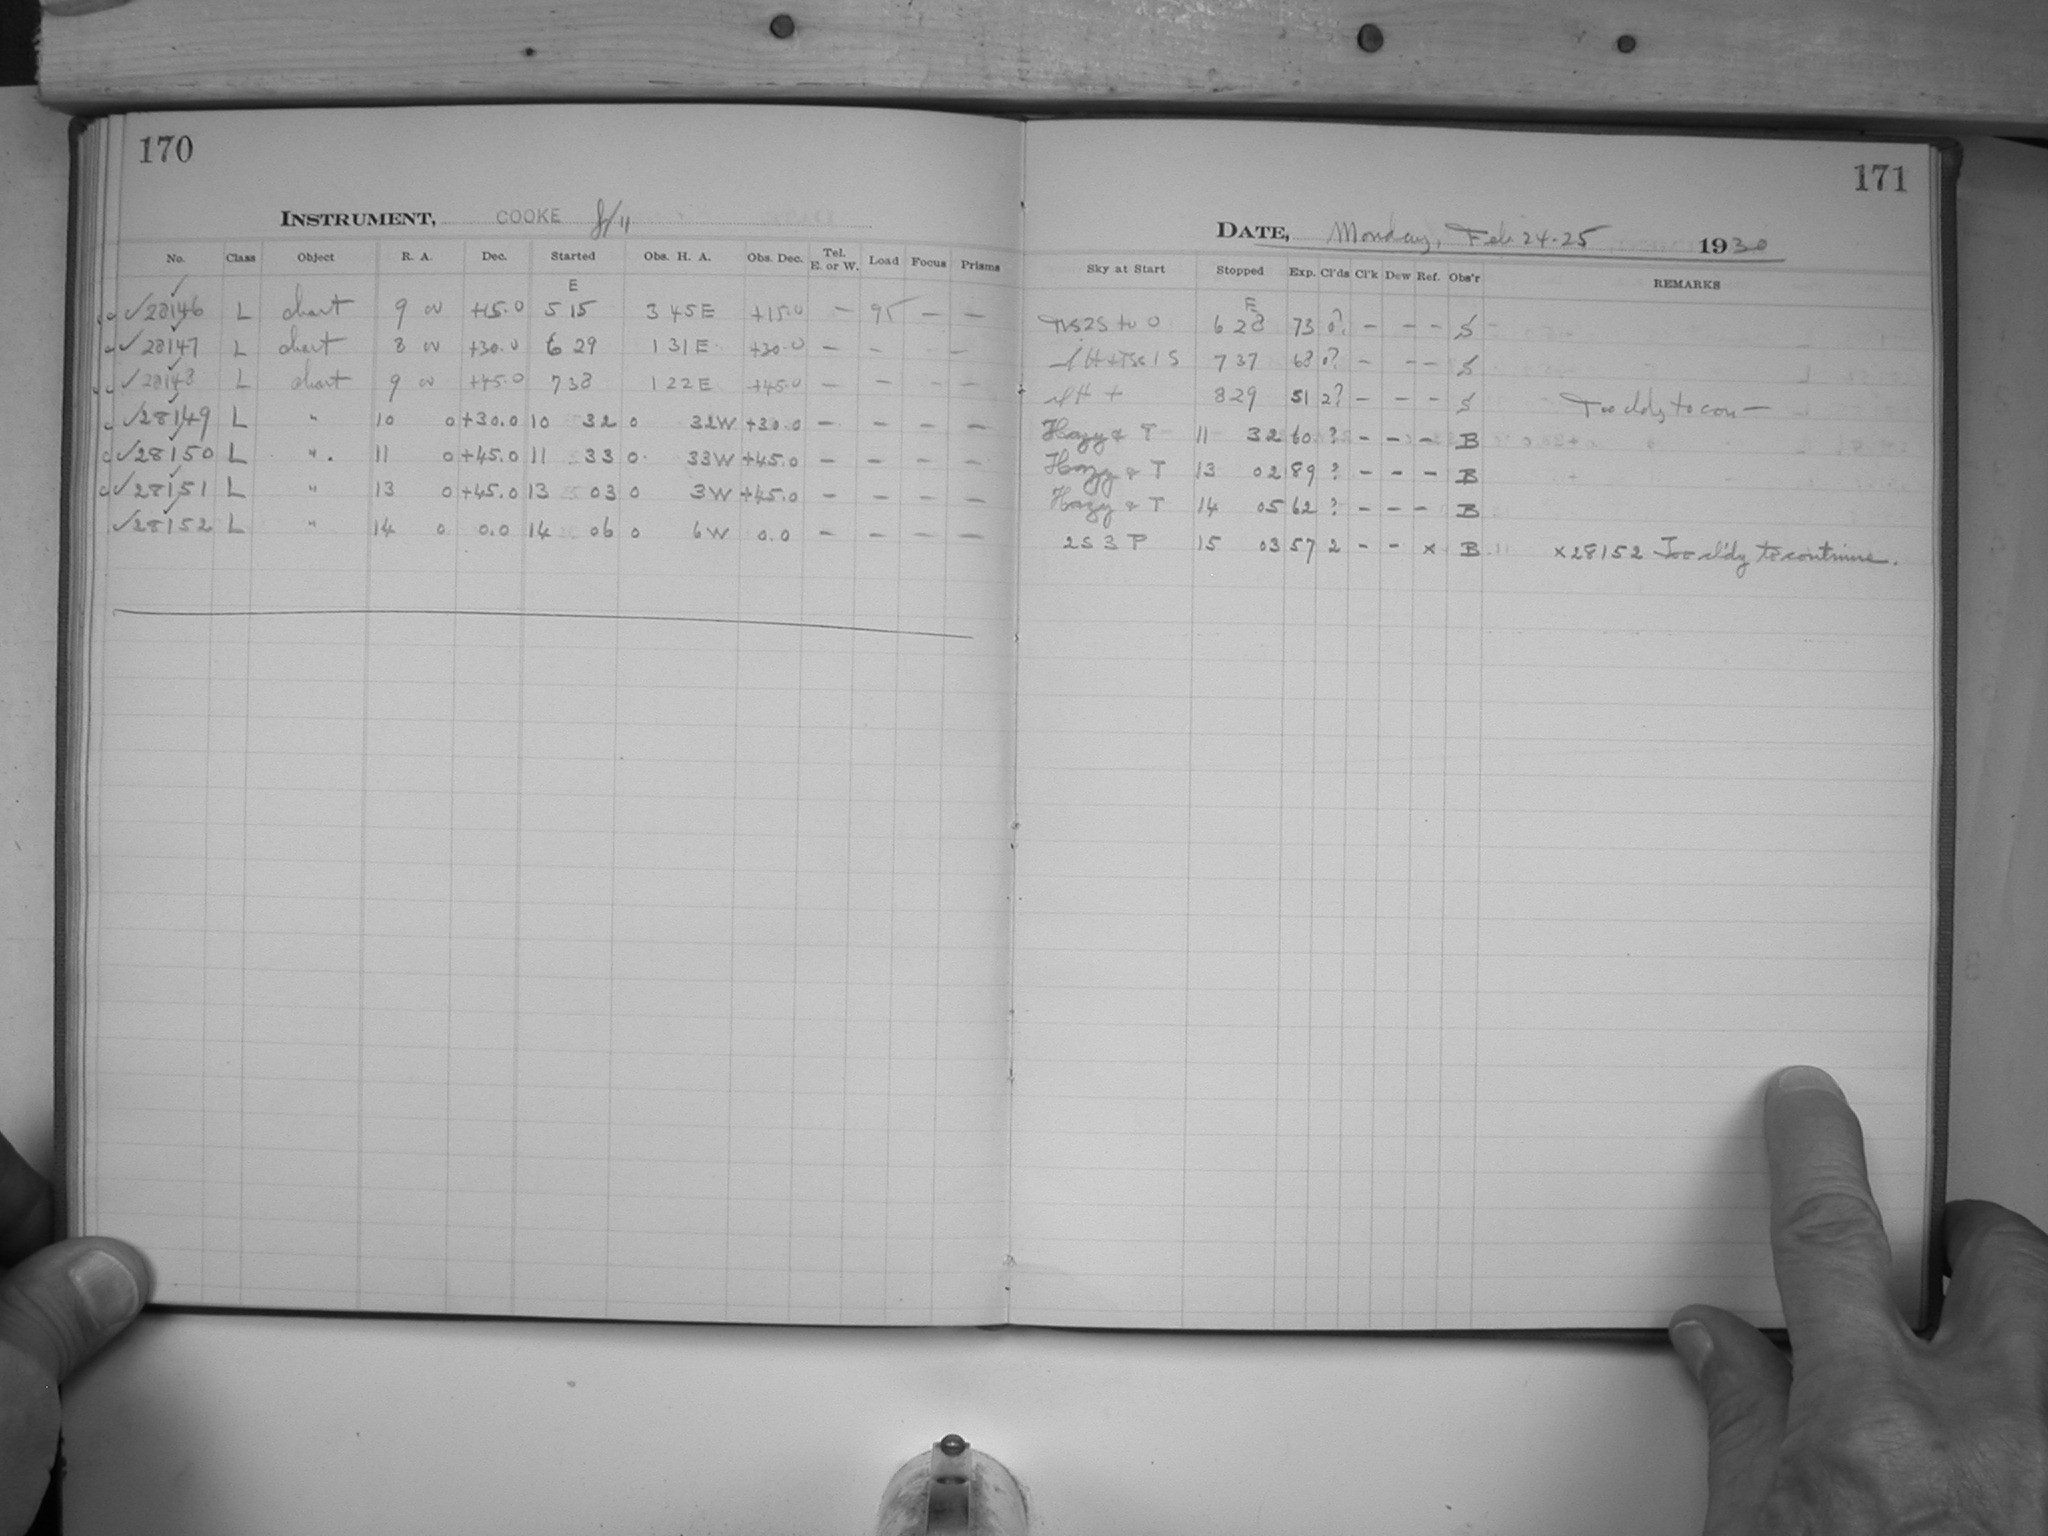 170
INSTRUMENT, COOKE f/11
No. Class Object R. A. Dec. Started Obs. H. A. Obs. Dec. Tel. E. or W. Load Focus Prisms
E
✓28146 L chart 9 00 +15.0 5 15 3 45 E +15.0 — 95 — —
✓28147 L chart 8 00 +30.0 6 29 1 31 E +30.0 — — —
✓28148 L chart 9 00 +45.0 7 38 1 22 E +45.0 — — — —
✓28149 L " 10 0 +30.0 10 32 0 32W +30.0 — — — —
✓28150 L " 11 0 +45.0 11 33 0 33W +45.0 — — — —
✓28151 L " 13 0 +45.0 13 03 0 3W +45.0 — — — —
✓28152 L " 14 0 0.0 14 06 0 6W 0.0 — — — —
171
DATE, Monday, Feb. 24-25 1930
Sky at Start Stopped Exp. Cl'ds Cl'k Dew Ref. Obs'r REMARKS
E
to 0 6 28 73 0? — — — S
7 37 68 0? — — — S
8 29 51 2? — — — S Too cldy to con—
Hazy & T 11 32 60 ? — — — B
Hazy & T 13 02 89 ? — — — B
Hazy & T 14 05 62 ? — — — B
2S 3 P 15 03 57 2 — — x B x28152 Too cl'dy to continue.